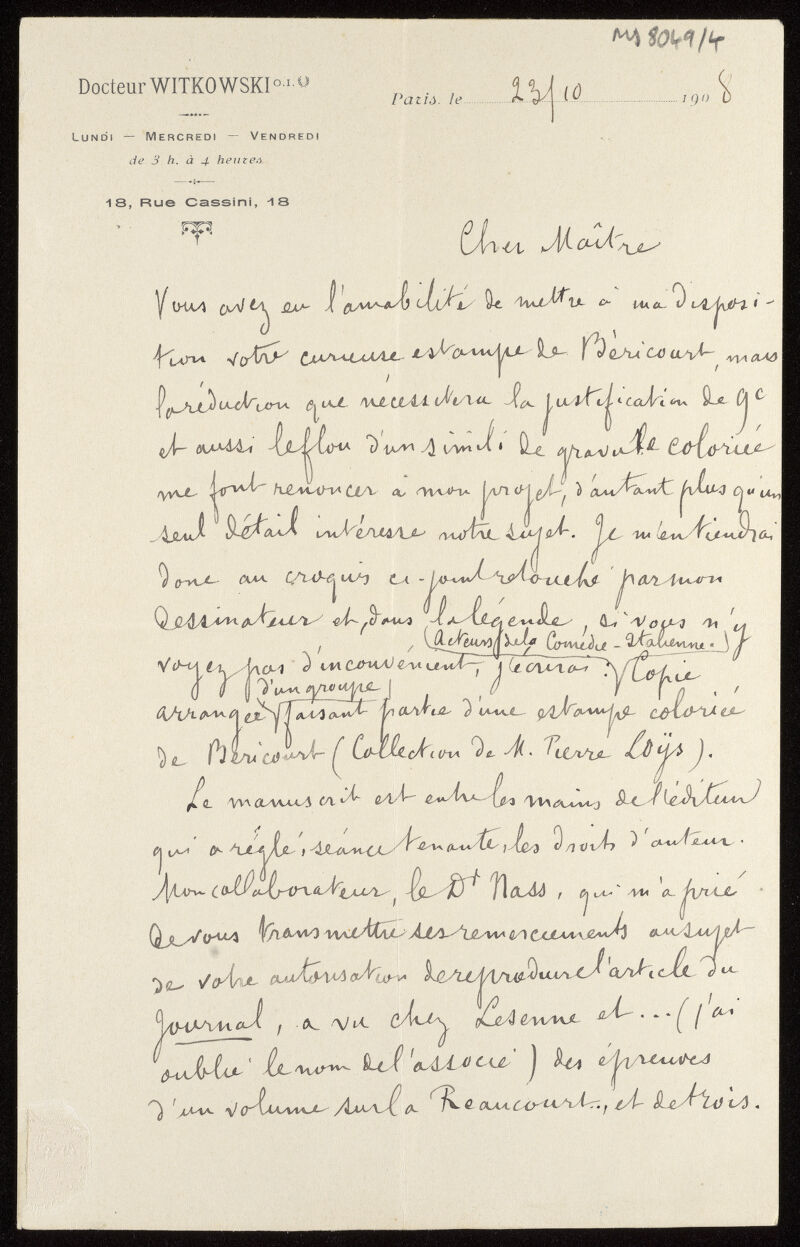 MS 8049/4
Docteur WITKOWSKI O.I.
Paris, le 23/10 1908
LUNDI — MERCREDI — VENDREDI
de 3 h. à 4 heures
18, Rue Cassini, 18
Cher Maître
Vous avez eu l'amabilité de mettre à ma disposi-
tion votre curieuse estampe de Béricourt, mais
la réduction que nécessitera la justification de 9c
et aussi le flou d'un simili de gravure coloriée
me font renoncer à mon projet, d'autant plus qu'un
seul détail intéresse notre sujet. Je m'en tiendrai
donc au croquis ci-joint retouché par mon
dessinateur et, dans la légende, si vous n'y
(Acteurs de la Comédie-Italienne.)
voyez pas d'inconvénient, j'écrirai : Copie
d'un groupe
arrangée faisant partie d'une estampe coloriée
de Béricourt (Collection de M. Pierre Loÿs).
Le manuscrit est entre les mains de l'éditeur
qui a réglé, séance tenante, les droits d'auteur.
Mon collaborateur, le Dr Nass, qui m'a prié
de vous transmettre ses remerciements au sujet
de votre autorisation de reproduire l'article du
Journal, a vu chez Lesenne et ... (j'ai
oublié le nom de l'associé) des épreuves
d'un volume sur la Reaucourt.., et de trois.